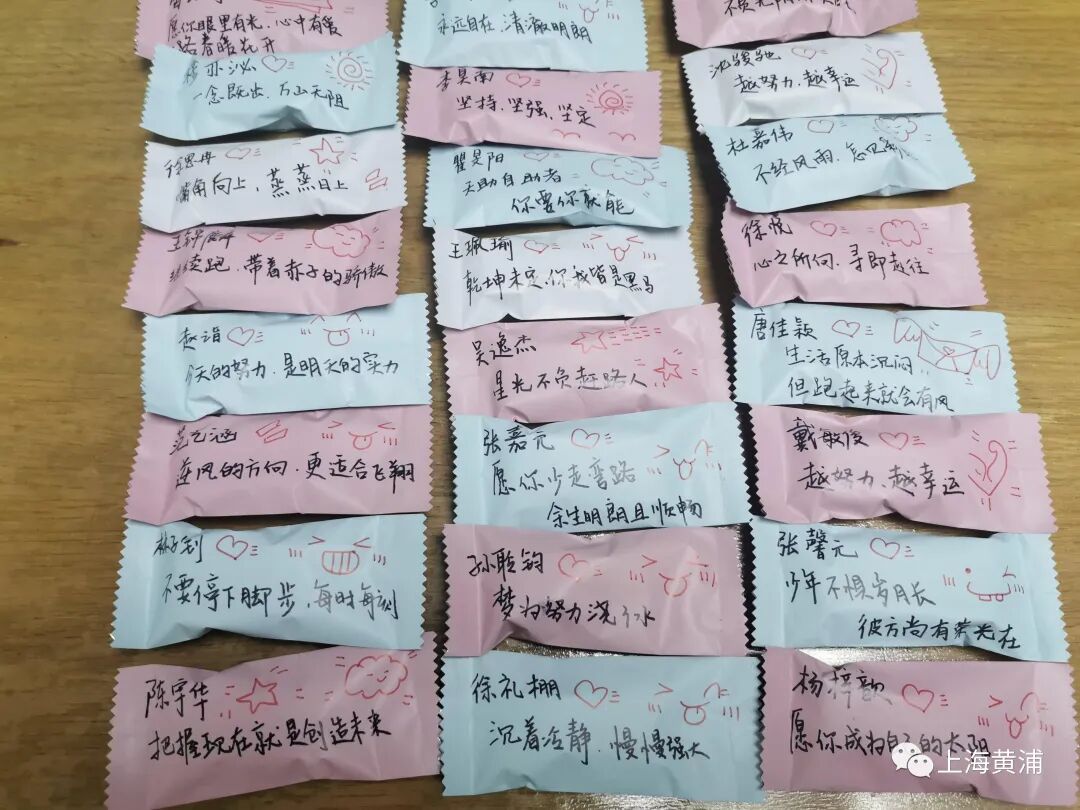 愿你眼里有光，心中有暖
路春暖花开
亦泌
一念既出，万山无阻
嘴角向上，蒸蒸日上
续跑，带着赤子的骄傲
赵诣
天的努力，是明天的实力
范艺涵
逆风的方向，更适合飞翔
不要停下脚步，每时每刻
陈宇华
把握现在就是创造未来
永远自在，清澈明朗
李昊南
坚持、坚强、坚定
瞿昊阳
天助自助者
你要你就能
王珮瑜
乾坤未定，你我皆是黑马
吴逸杰
星光不负赶路人
张嘉元
愿你少走弯路
余生明朗且顺畅
孙聆钧
梦想努力浇水
徐礼棚
沉着冷静，慢慢强大
不负光阴
沈骏驰
越努力，越幸运
杜嘉伟
不经风雨，怎见
徐悦
心之所向，寻即赴往
唐佳颖
生活原本沉闷
但跑起来就会有风
戴敏俊
越努力，越幸运
张馨元
少年不惧岁月长
彼方尚有荣光在
杨梓歆
愿你成为自己的太阳
上海黄浦